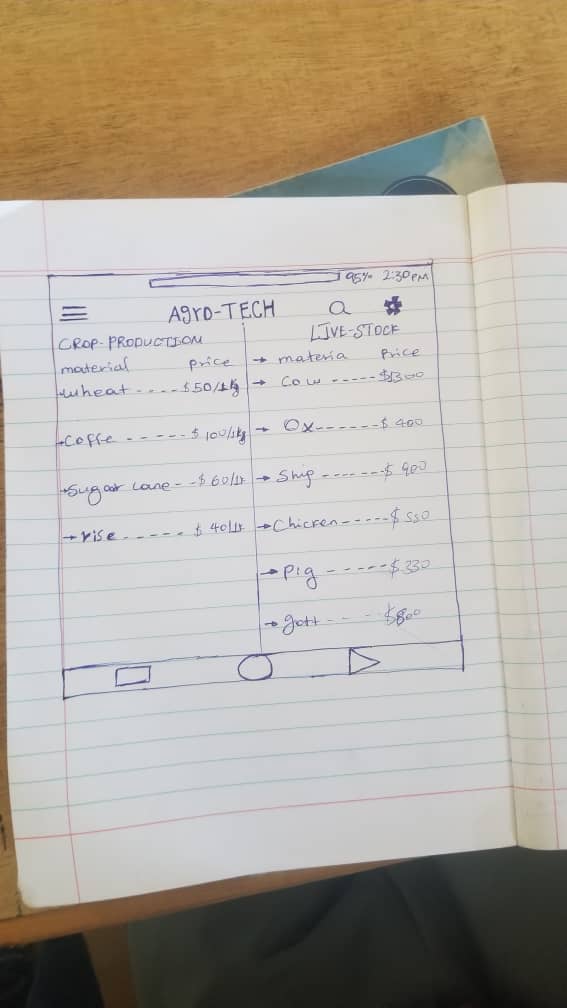 95% 2:30PM
Agro-TECH
CROP-PRODUCTION
material price
→wheat ---- $50/1kg
→Coffe ------ $100/1kg
→Sugar cane -- $60/1k
→rise ----- $40/1k
LIVE-STOCK
→ materia Price
→ Cow ----- $1300
→ Ox ------ $400
→ Ship ------ $900
→ Chicken ----- $550
→ Pig ----- $330
→ gott --- $800